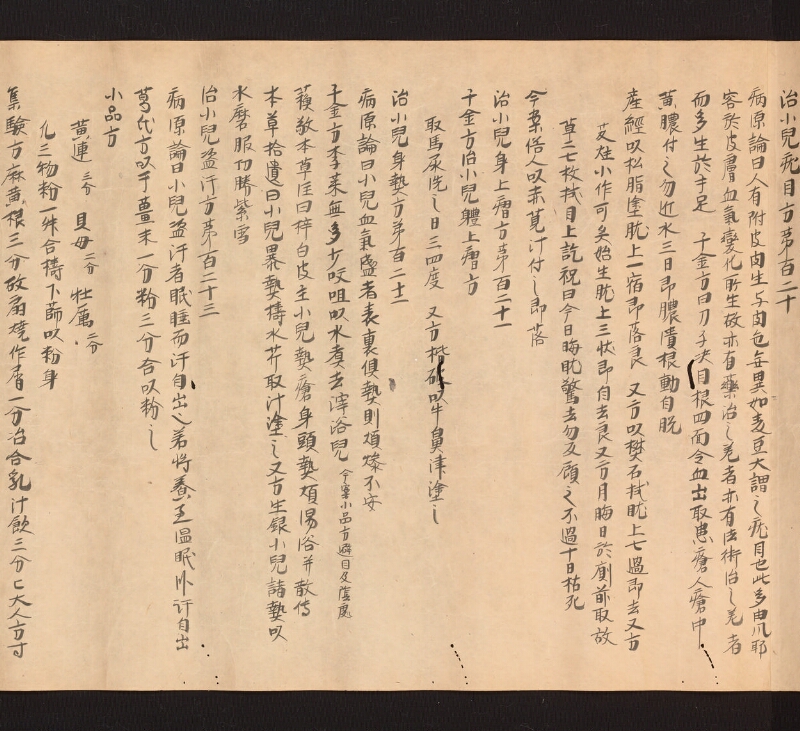 治小兒疣目方第百二十
病源論曰人有附皮肉生与肉色無異如麦豆大謂之疣目也此多由風耶
容於皮膚血氣變化所生故亦有藥治之差者亦有法術治之差者
而多生於手足 千金方曰刀子决目根四面令血出取患瘡人瘡中
黄膿付之勿近水三日即膿潰根動自脱
産經以松脂塗疣上一宿即落良 又方以樊石拭疣上七過即去又方
艾炷小作可矣始生疣上三壮即自去良又方月晦日於厠前取故
草二七枚拭目上訖祝曰今日晦疣驚去勿反顧之不過十日枯死
今案俗人以赤莧汁付之即落
治小兒身上瘤方第百二十一
千金方治小兒體上瘤方
取馬尿洗之日三四度 又方以牛鼻津塗之
治小兒身熱方第百二十二
病源論曰小兒血氣盛者表裏俱熱則煩燥不安
千金方李葉無多少㕮咀以水煑去滓浴兒 今案小品方避目及陰處
蘓敬本草注曰梓白皮主小兒熱瘡身頭熱煩湯浴并散傅
本草拾遺曰小兒暴熱擣水芹取汁塗之又方生銀小兒諸熱以
水磨服功勝紫雪
治小兒盗汗方第百二十三
病源論曰小兒盗汗者眠睡而汗自出之若将養至温眠卧汗自出
葛氏方以干薑末一分粉三分合以粉之
小品方
黄連三分 貝母二分 牡厲二分
凡三物粉一升合擣下篩以粉身
集驗方麻黄根三分故扇燒作屑一分治合乳汁飲三分匕大人方寸